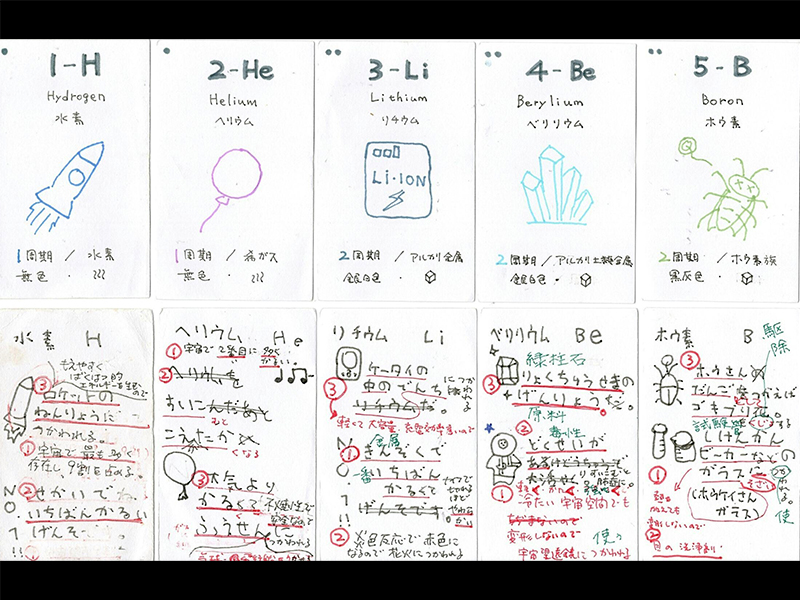 1-H
Hydrogen
水素
1周期 / 水素
無色 ・
2-He
Helium
ヘリウム
1周期 / 希ガス
無色 ・
3-Li
Lithium
リチウム
Li-ION
2周期 / アルカリ金属
銀白色 ・
4-Be
Berylium
ベリリウム
2周期 / アルカリ土類金属
銀白色 ・
5-B
Boron
ホウ素
G
2周期 / ホウ素族
黒灰色 ・
水素 H
もえやすく
ばくはつ的
③ロケットの
ねんりょうに
つかわれる。
①宇宙で最も多く
存在し、9割を占める
NO.1!!
②せかいでね
いちばんかるい
げんそ
ヘリウム He
①宇宙で2番目に多く
②ヘリウムを
すいこんだあと
こえたかく
くなる
③大気より
かるくて
ふうせんに
つかわれる
リチウム Li
③ケータイの
中のでんち
につかわれる
リチウムだ。
NO.1!!
金属
①きんぞくで
一番
いちばん
かるくて
げんそです
②炎色反応で赤色に
なるので花火につかわれる
ベリリウム Be
緑柱石
③りょくちゅうせきの
げんりょうだ。
原料
②毒性
どくせいが
①軽くかたく
冷たい宇宙空間でも
変形しないので
使う
宇宙望遠鏡につかわれる
ホウ素 B
駆除
③ホウさん
だんごつかえば
ゴキブリ死。
試験管
しけんかん
ビーカーなどの
ガラスに
(ホウケイさん
ガラス)
①
変形しないので
②目の洗浄剤